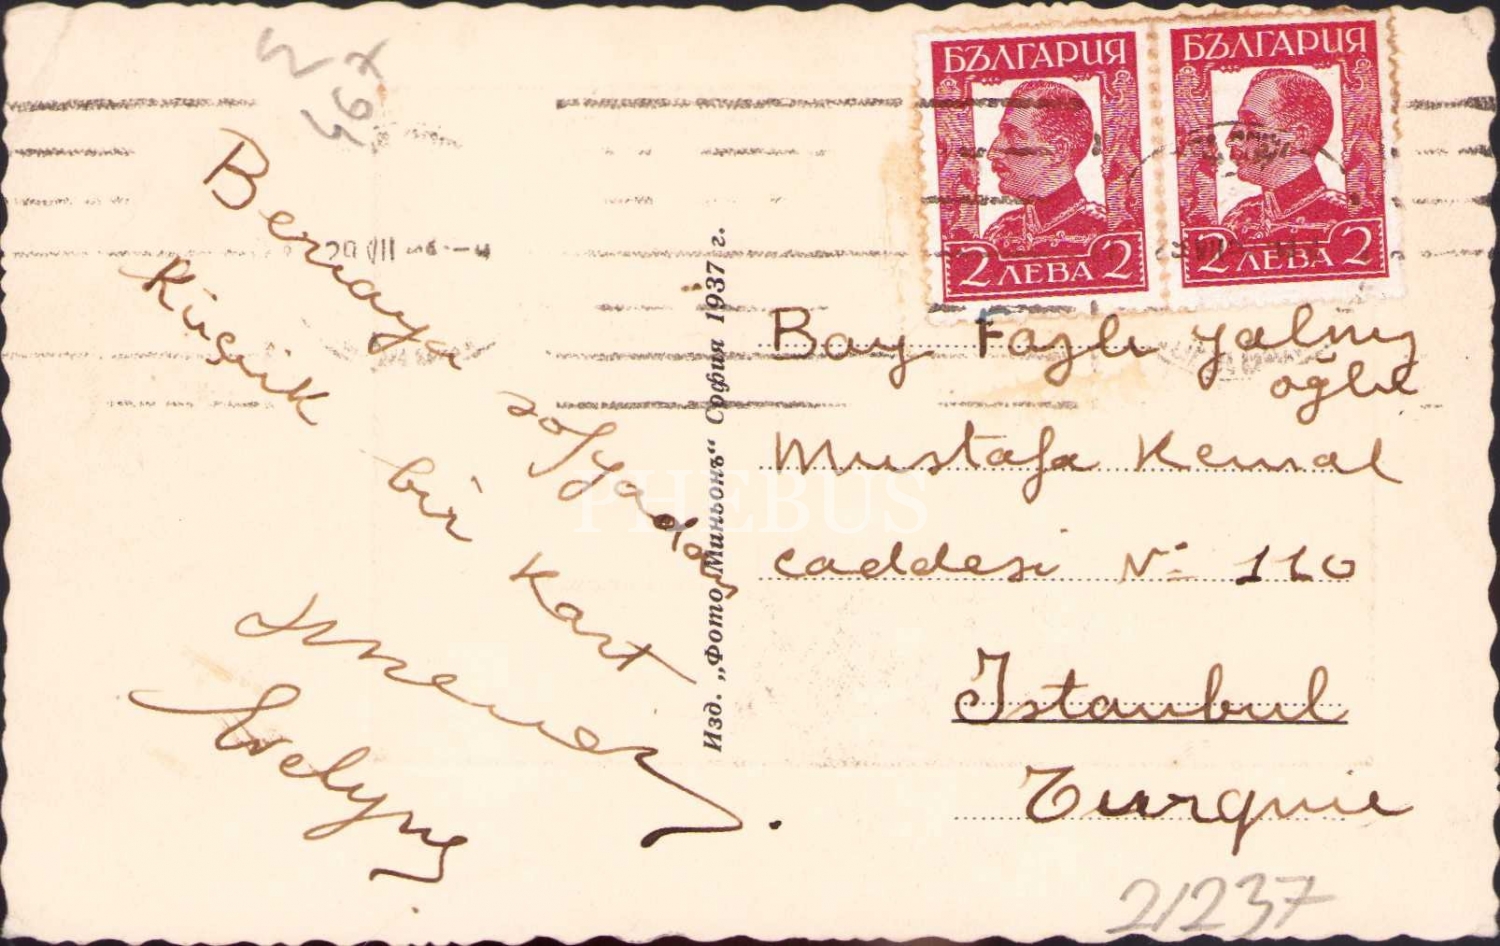 БЪЛГАРИЯ
2 ЛЕВА 2
БЪЛГАРИЯ
2 ЛЕВА 2
Berraya sofyadan
Küçük bir kart
Evelyne
Изд. „Фото Миньонъ“ София 1937 г.
Bay Fazlı Yalınız
oğlu
Mustafa Kemal
caddesi No 110
Istanbul
Turquie
21237
PHEBUS